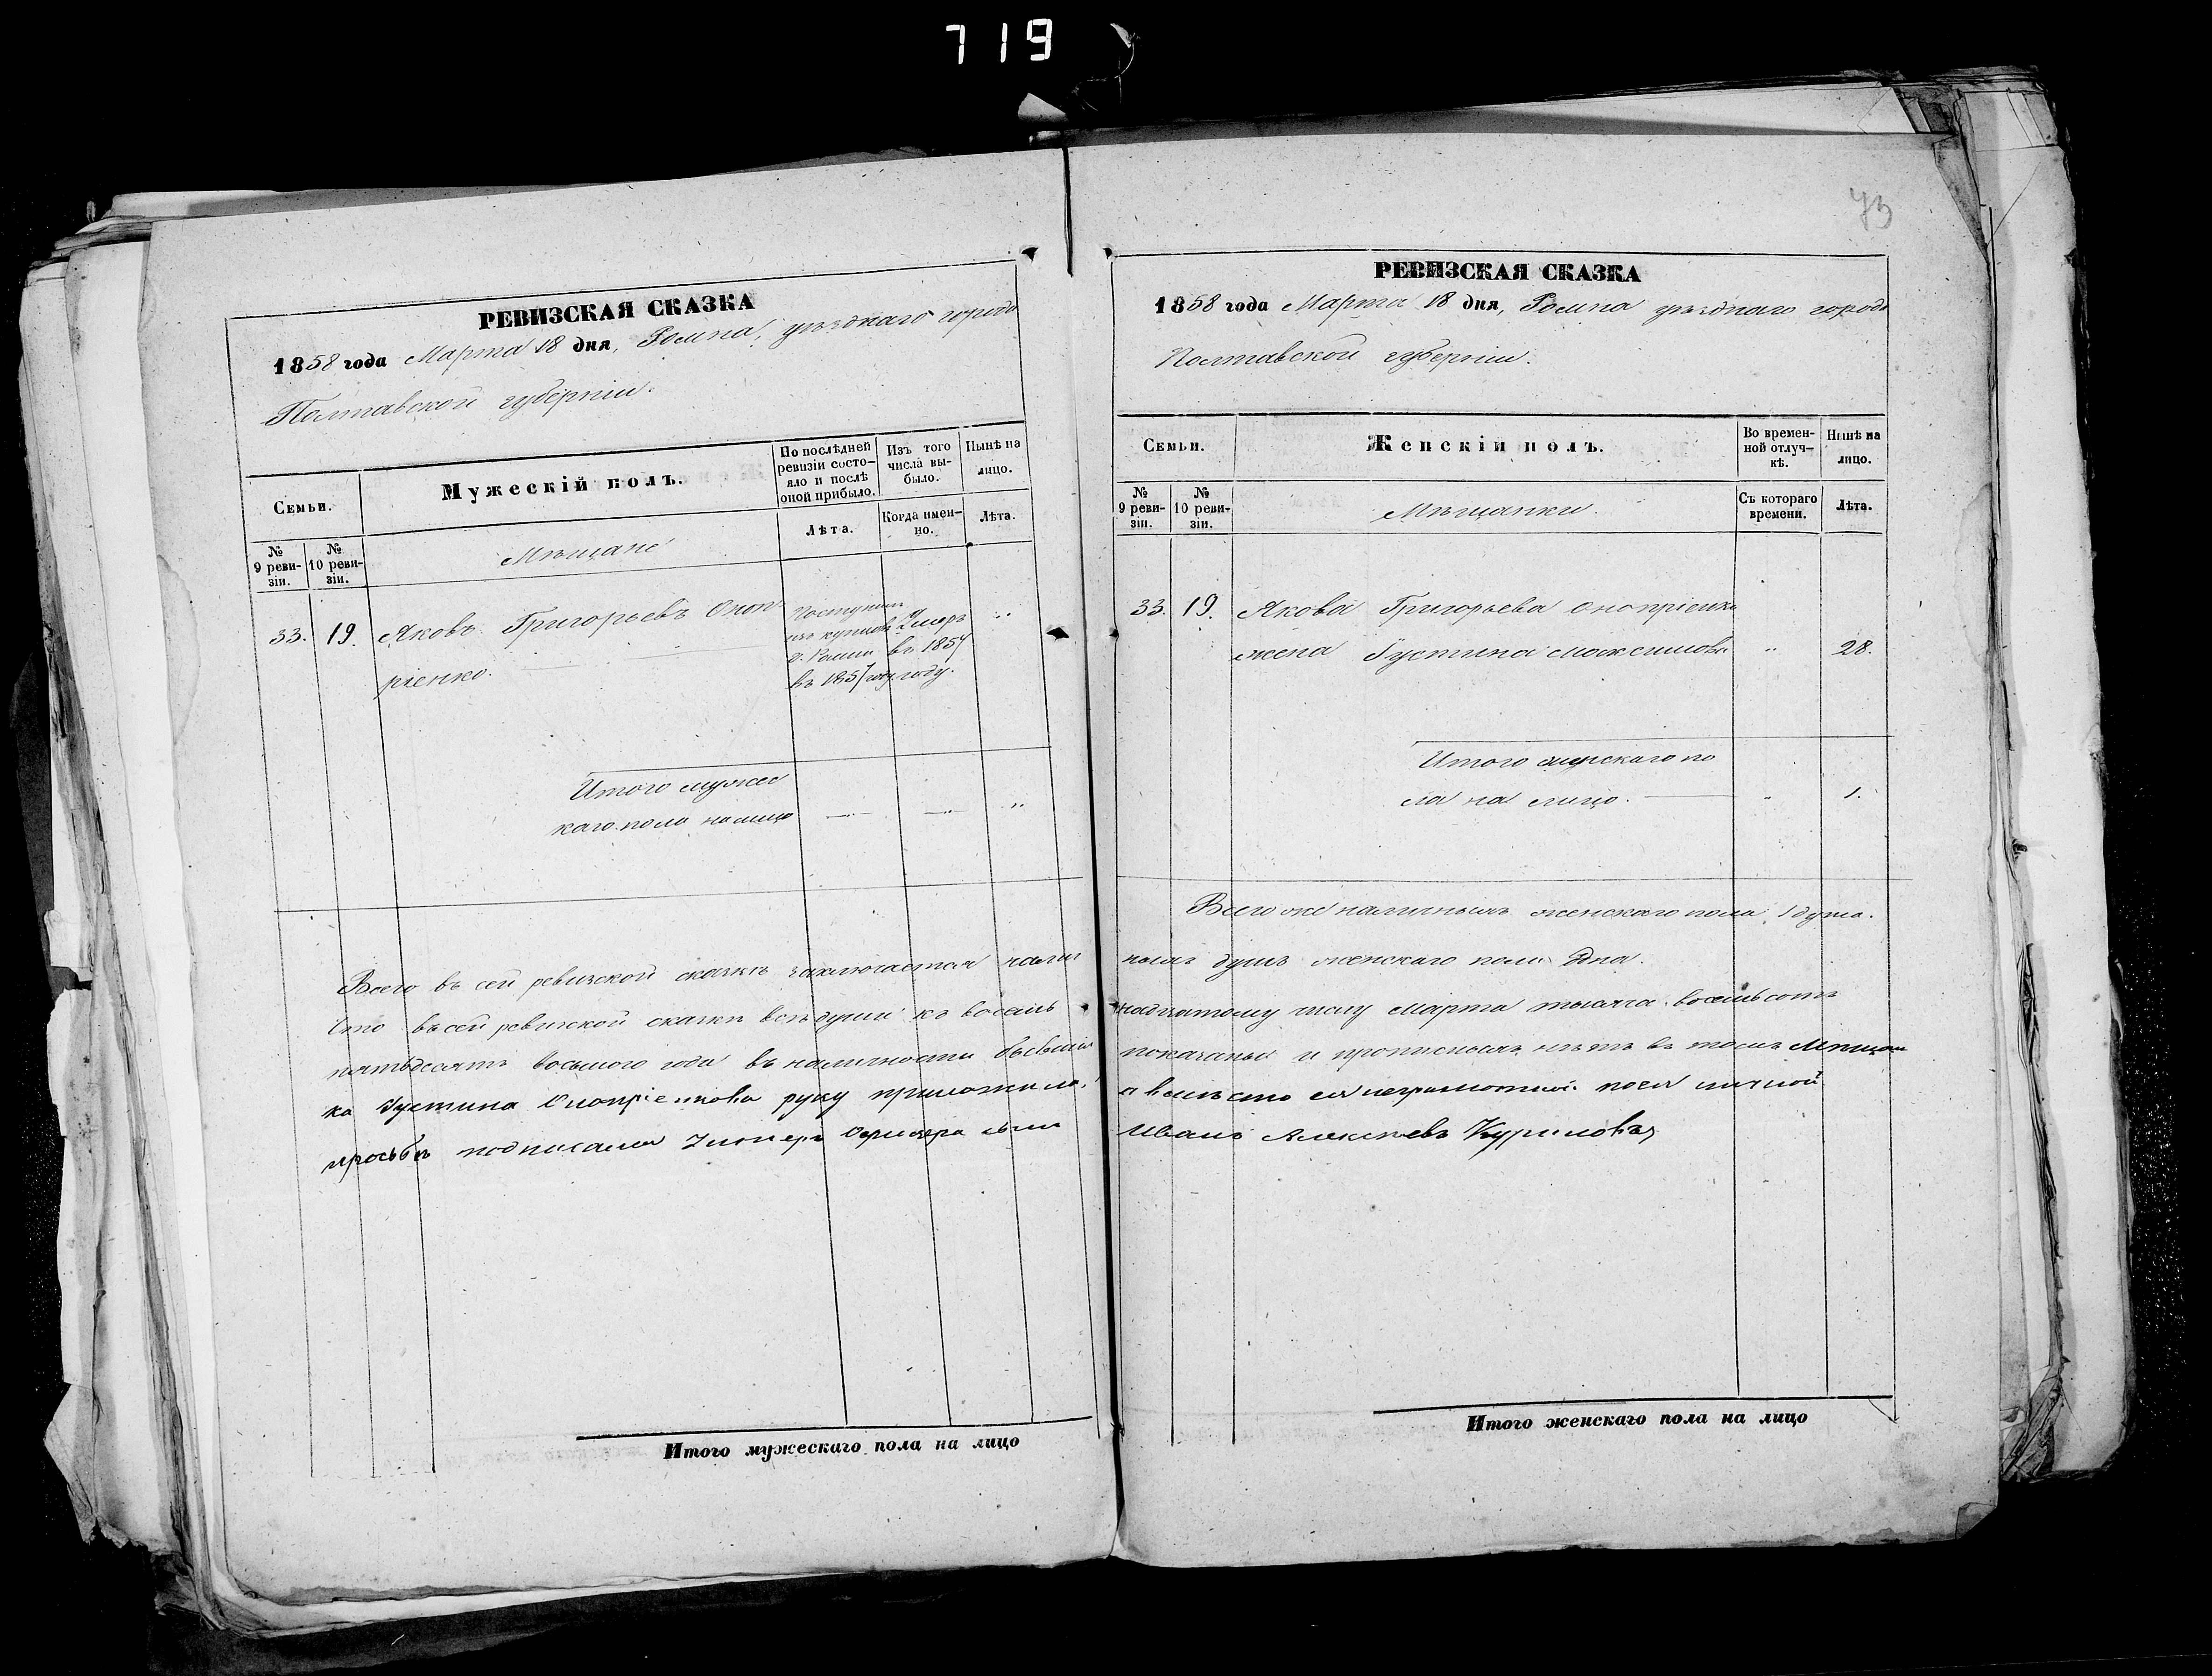 719
73
РЕВИЗСКАЯ СКАЗКА
1858 года Марта 18 дня, Ромна, уѣзднаго города
Полтавской губерніи.
Семьи.
Мужескій полъ.
По послѣдней ревизіи состо-
яло и послѣ
оной прибыло.
Изъ того
числа вы-
было.
Нынѣ на
лицо.
№
9 реви-
зіи.
№
10 реви-
зіи.
Мѣщане
Лѣта.
Когда имен-
но.
Лѣта.
33. 19. Яковъ Григорьевъ Оноп
ріенко.
Поступил
изъ купцовъ
г. Ромна
въ 1857 году
Умеръ
въ 1857
году.
Итого мужес
каго пола налицо
Всего въ сей ревизской сказкѣ заключается налич
Что въ сей ревизской сказкѣ всѣ души къ восемь
пятьдесятъ восьмого года въ наличности бывшія
ка Густина Оноприенкова руку приложила,
просьбѣ подписался
РЕВИЗСКАЯ СКАЗКА
1858 года Марта 18 дня, Ромна уѣзднаго города
Полтавской губерніи.
Семьи.
Женскій полъ.
Во времен-
ной отлуч-
кѣ.
Нынѣ на
лицо.
№
9 реви-
зіи.
№
10 реви-
зіи.
Мѣщанки.
Съ котораго
времени.
Лѣта.
33. 19. Якова Григорьева Оноприенка
жена Густина Максимова " 28.
Итого женскаго по
ла на лицо. " 1.
Всего же наличныхъ женскаго пола 1 душа.
ныхъ душъ женскаго пола одна.
надцатому числу Марта тысяча восемьсотъ
показаны и прописныхъ нѣтъ въ томъ Мѣщан
а вмѣсто ея неграмотной по ея личной
Иванъ Алексѣевъ Куриловъ
Итого мужескаго пола на лицо
Итого женскаго пола на лицо